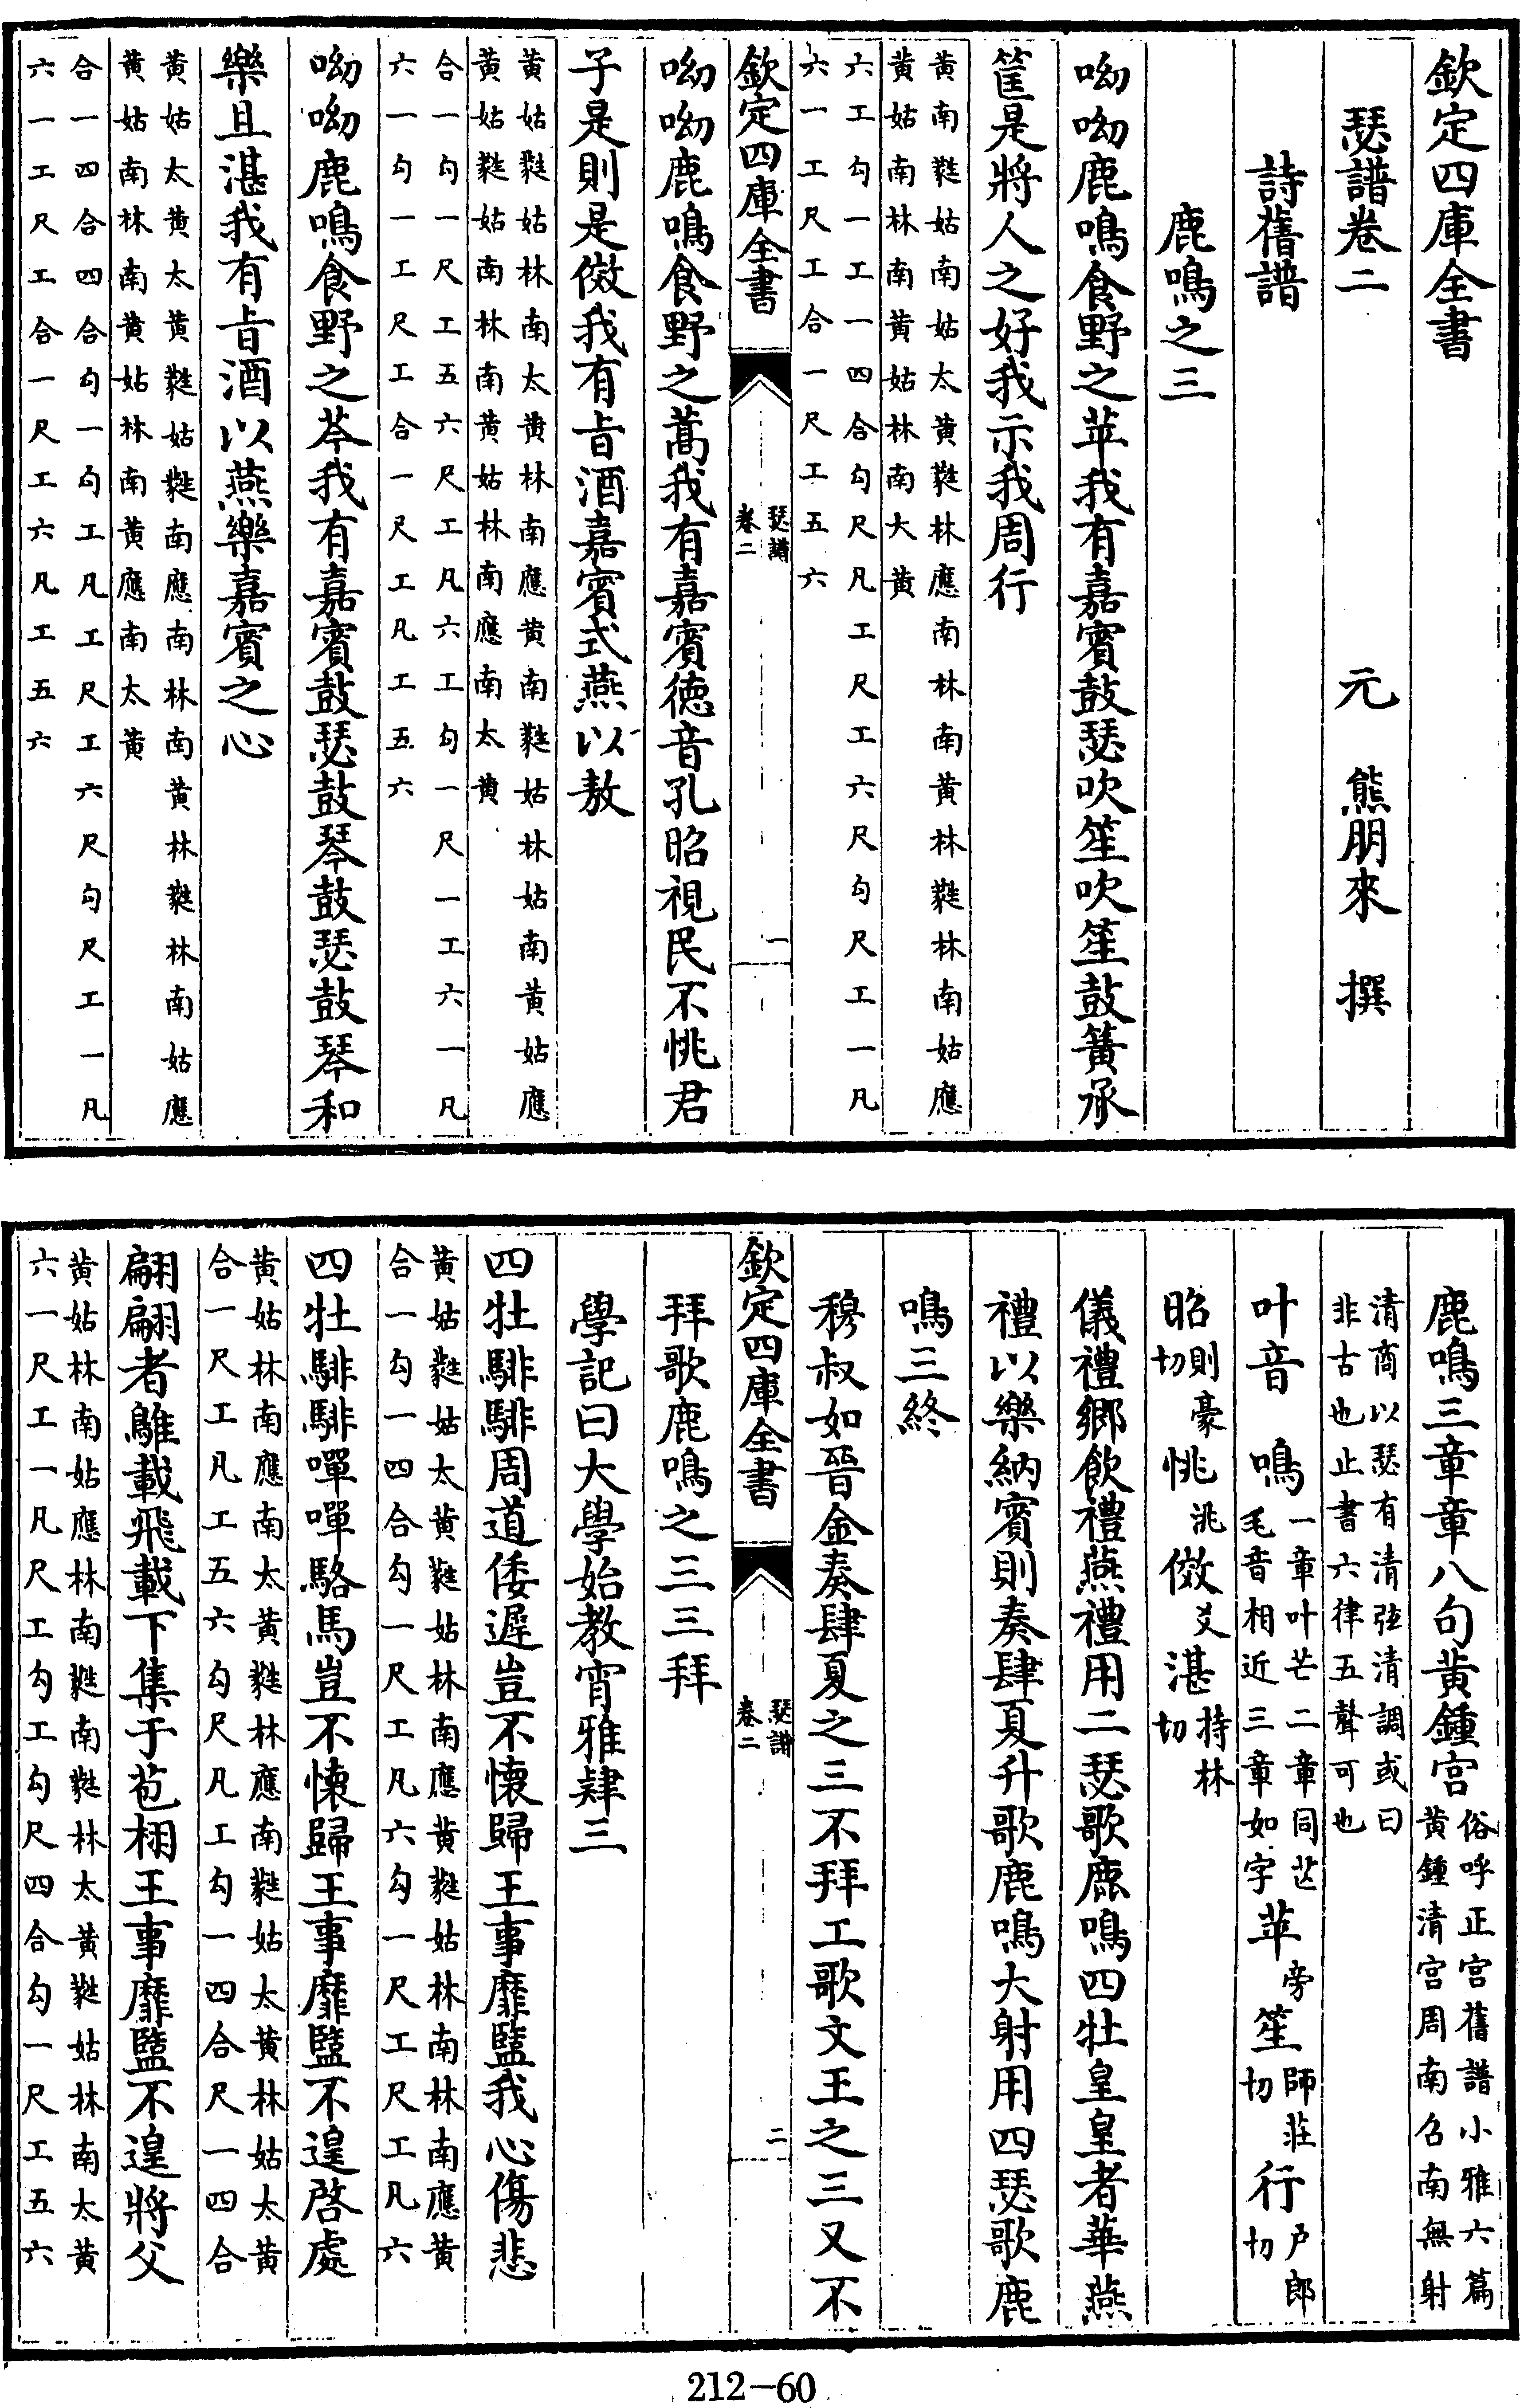 欽定四庫全書
瑟譜卷二 元 熊朋來 撰
詩舊譜
鹿鳴之三
呦呦鹿鳴食野之苹我有嘉賓鼓瑟吹笙吹笙鼓簧承
筐是將人之好我示我周行
黄南蕤姑南姑太黄蕤林應南林南黄林蕤林南姑應
黄姑南林南黄姑林南大黄
六工勾一工一四合勾尺凡工尺工六尺勾尺工一凡
六一工尺工合一尺工五六
欽定四庫全書 瑟譜 卷二 一
呦呦鹿鳴食野之蒿我有嘉賓徳音孔昭視民不恌君
子是則是傚我有旨酒嘉賓式燕以敖
黄姑蕤姑林南太黄林南應黄南蕤姑林姑南黄姑應
黄姑蕤姑南林南黄姑林南應南太黄
合一勾一尺工五六尺工凡六工勾一尺一工六一凡
六一勾一工尺工合一尺工凡工五六
呦呦鹿鳴食野之芩我有嘉賓鼓瑟鼓琴鼓瑟鼓琴和
樂且湛我有旨酒以燕樂嘉賓之心
黄姑太黄太黄蕤姑蕤南應南林南黄林蕤林南姑應
黄姑南林南黄姑林南黄應南太黄
合一四合四合勾一勾工凡工尺工六尺勾尺工一凡
六一工尺工合一尺工六凡工五六
鹿鳴三章章八句黄鍾宫 俗呼正宫舊譜小雅六篇
黄鍾清宫周南召南無射
清商以瑟有清弦清調或曰
非古也止書六律五聲可也
叶音 鳴 一章叶芒二章同芒毛音相近三章如字 苹 旁 笙 師莊切 行 户郎切
昭 則豪切 恌 洮 傚 爻 湛 持林切
儀禮鄉飲禮燕禮用二瑟歌鹿鳴四牡皇皇者華燕
禮以樂納賓則奏肆夏升歌鹿鳴大射用四瑟歌鹿
鳴三終
穆叔如晉金奏肆夏之三不拜工歌文王之三又不
欽定四庫全書 瑟譜 卷二 二
拜歌鹿鳴之三三拜
學記曰大學始教宵雅肄三
四牡騑騑周道倭遲豈不懷歸王事靡盬我心傷悲
黄姑蕤姑太黄蕤姑林南應黄蕤姑林南林南應黄
合一勾一四合勾一尺工凡六勾一尺工尺工凡六
四牡騑騑嘽嘽駱馬豈不懷歸王事靡盬不遑啓處
黄姑林南應南太黄蕤林應南蕤姑太黄林姑太黄
合一尺工凡工五六勾尺凡工勾一四合尺一四合
翩翩者鵻載飛載下集于苞栩王事靡盬不遑將父
黄姑林南姑應林南蕤南蕤林太黄蕤姑林南太黄
六一尺工一凡尺工勾工勾尺四合勾一尺工五六
212-60